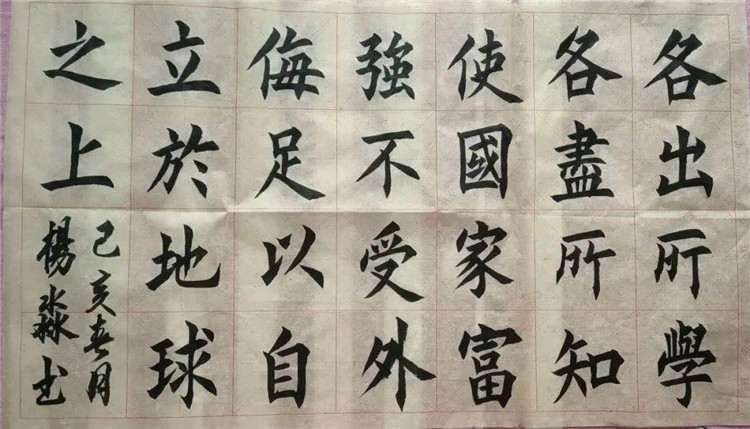 各出所學
各盡所知
使國家富
強不受外
侮足以自
立於地球
之上
己亥春月
楊淼书